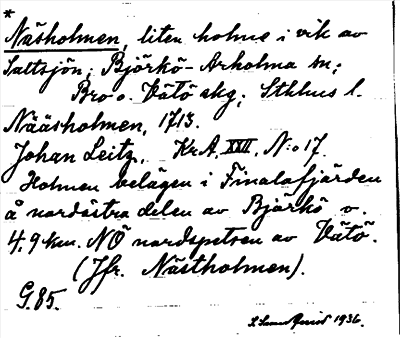 *
Näsholmen, liten holme i vik av
Saltsjön; Björkö-Arholma sn;
Bro o. Vätö skg; Sthlms l.
Nääsholmen, 1713.
Johan Leitz, KrA, XXII, N:o 17.
Holmen belägen i Finalafjärden
å nordöstra delen av Björkö o.
4,9 km. NÖ nordspetsen av Vätö.
(Jfr. Nästholmen).
G.85.
1936.